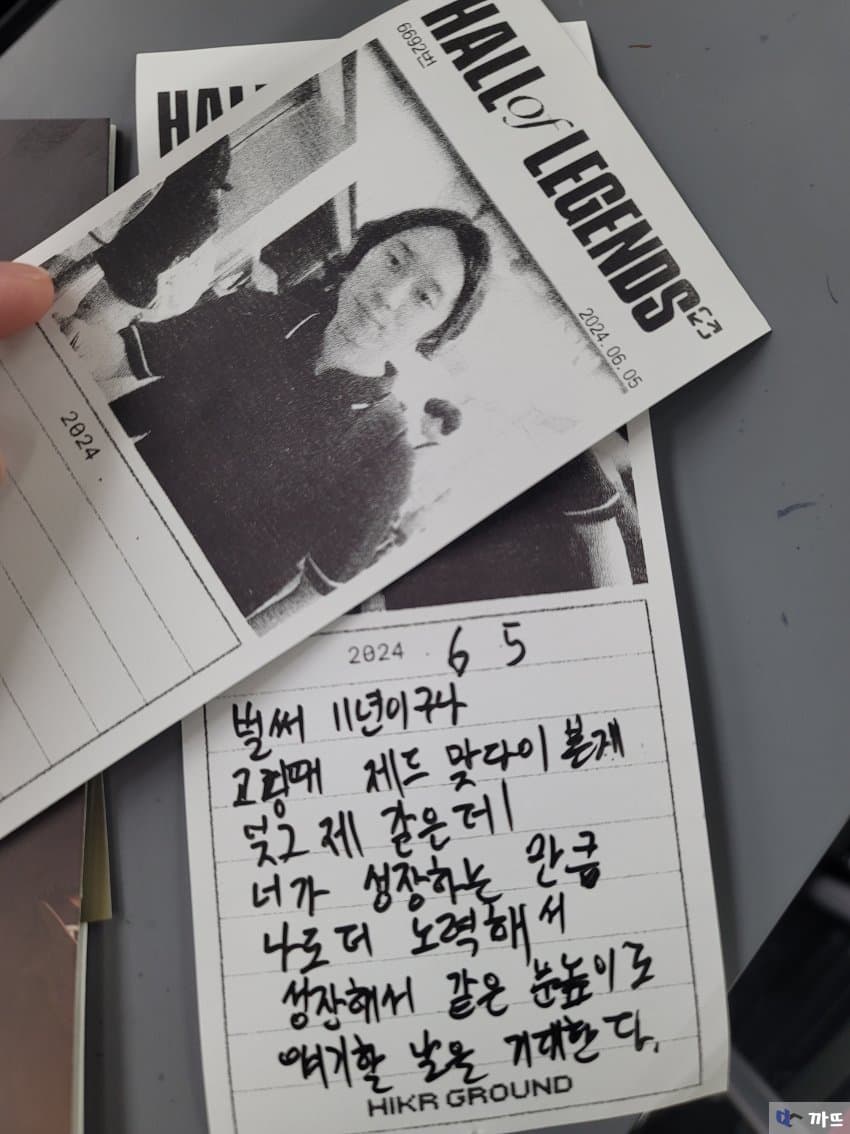 HALL of LEGENDS
6692번
2024.06.05
2024.
HAL
2024 . 6 5
벌써 11년이구나
고랑때 제드 맞다이 본재
엊그제 같은데
너가 성장하는 만큼
나도 더 노력해서
성장해서 같은 눈높이로
얘기할 날을 기대한다.
HIKR GROUND
까뜨